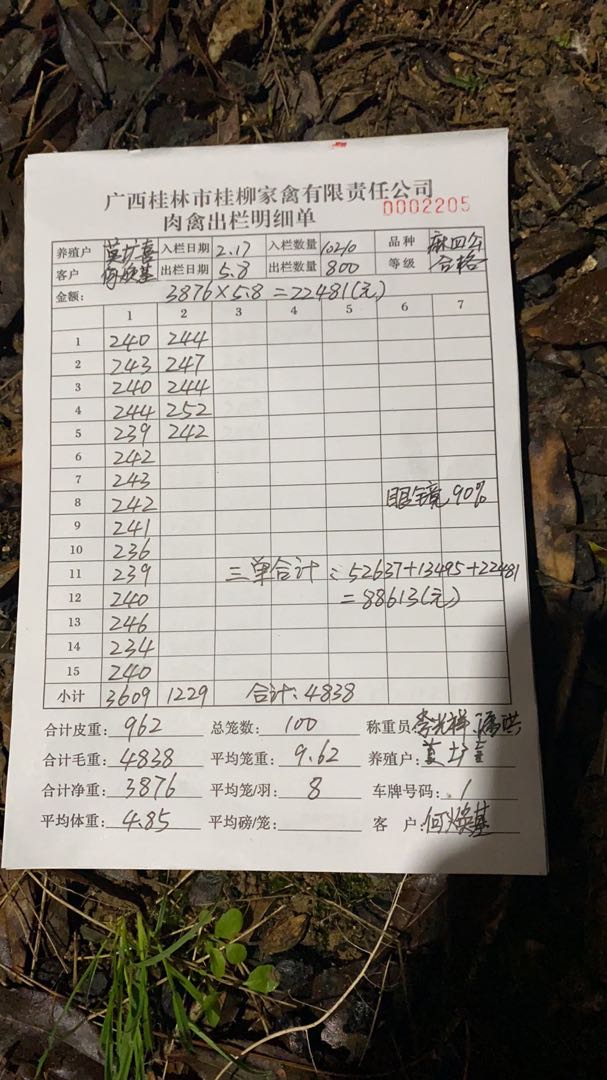 广西桂林市桂柳家禽有限责任公司
肉禽出栏明细单 0002205
养殖户 入栏日期 2.17 入栏数量 1020 品种 麻四公
客户 何焕基 出栏日期 5.8 出栏数量 800 等级 合格
金额: 3876×5.8=22481(元)
1 2 3 4 5 6 7
1 240 244
2 243 247
3 240 244
4 244 252
5 239 242
6 242
7 243
8 242 眼镜90%
9 241
10 236
11 239 三单合计:52637+13495+22481
12 240 =88613(元)
13 246
14 234
15 240
小计 3609 1229 合计:4838
合计皮重: 962 总笼数: 100 称重员: 李光祥
合计毛重: 4838 平均笼重: 9.62 养殖户:
合计净重: 3876 平均笼/羽: 8 车牌号码: 1
平均体重: 4.85 平均磅/笼: 客户: 何焕基